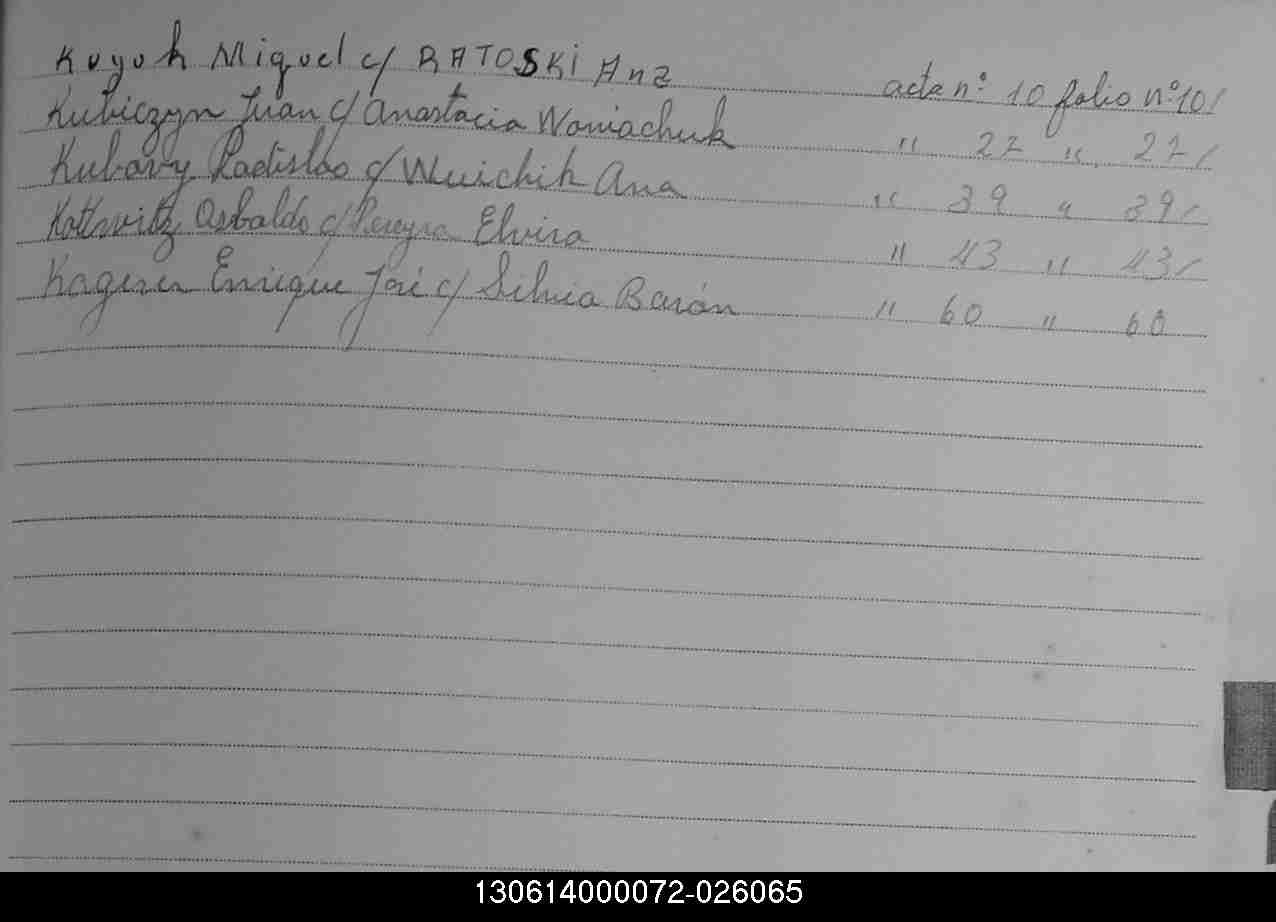 Kuyuk Miguel c/ RATOSKI Ana acta n° 10 folio n° 10/
Kubiczyn Juan c/ Anastacia Woniachuk " 27 " 27/
Kubavy Ladislao c/ Wuichik Ana " 39 " 39/
Kottwitz Osbaldo c/ Pereyra Elvira " 43 " 43/
Kagerer Enrique José c/ Silvia Barán " 60 " 60
130614000072-026065